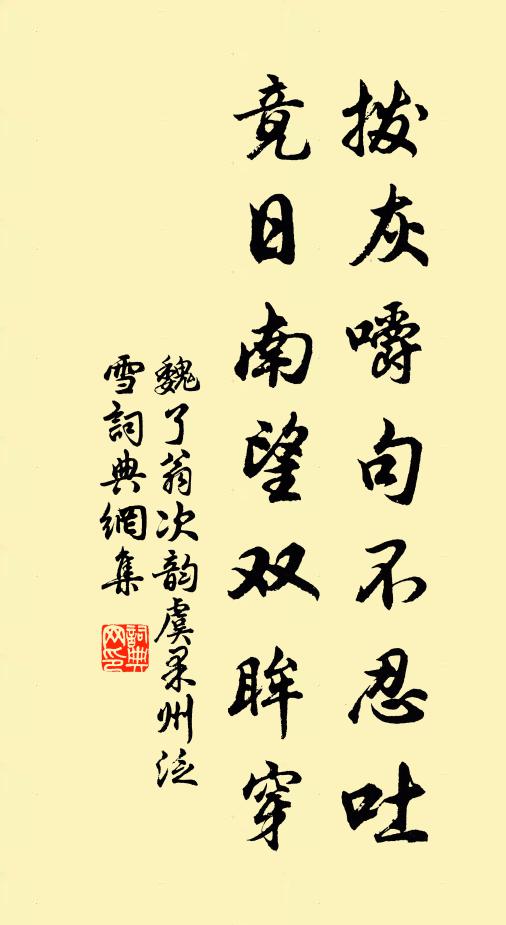 拨灰嚼句不忍吐
竟日南望双眸穿
魏了翁次韵虞果州泛
雪詞典網集
詞典网印